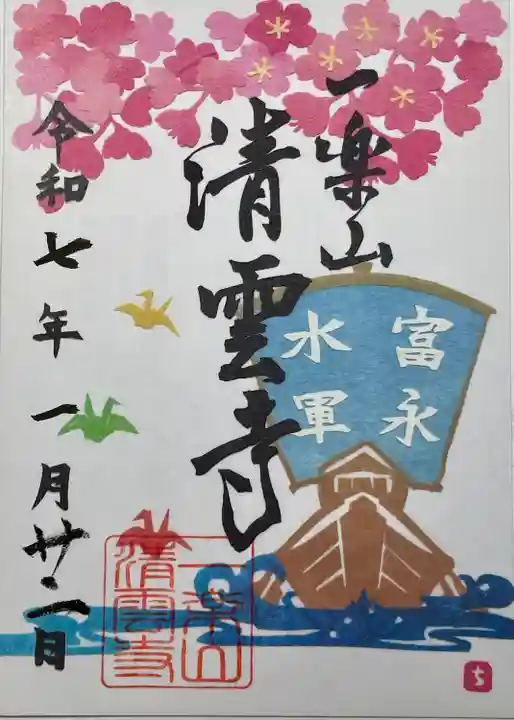 一楽山
清雲寺
富永
水軍
令和七年一月廿一日
一楽山
清雲寺
ち